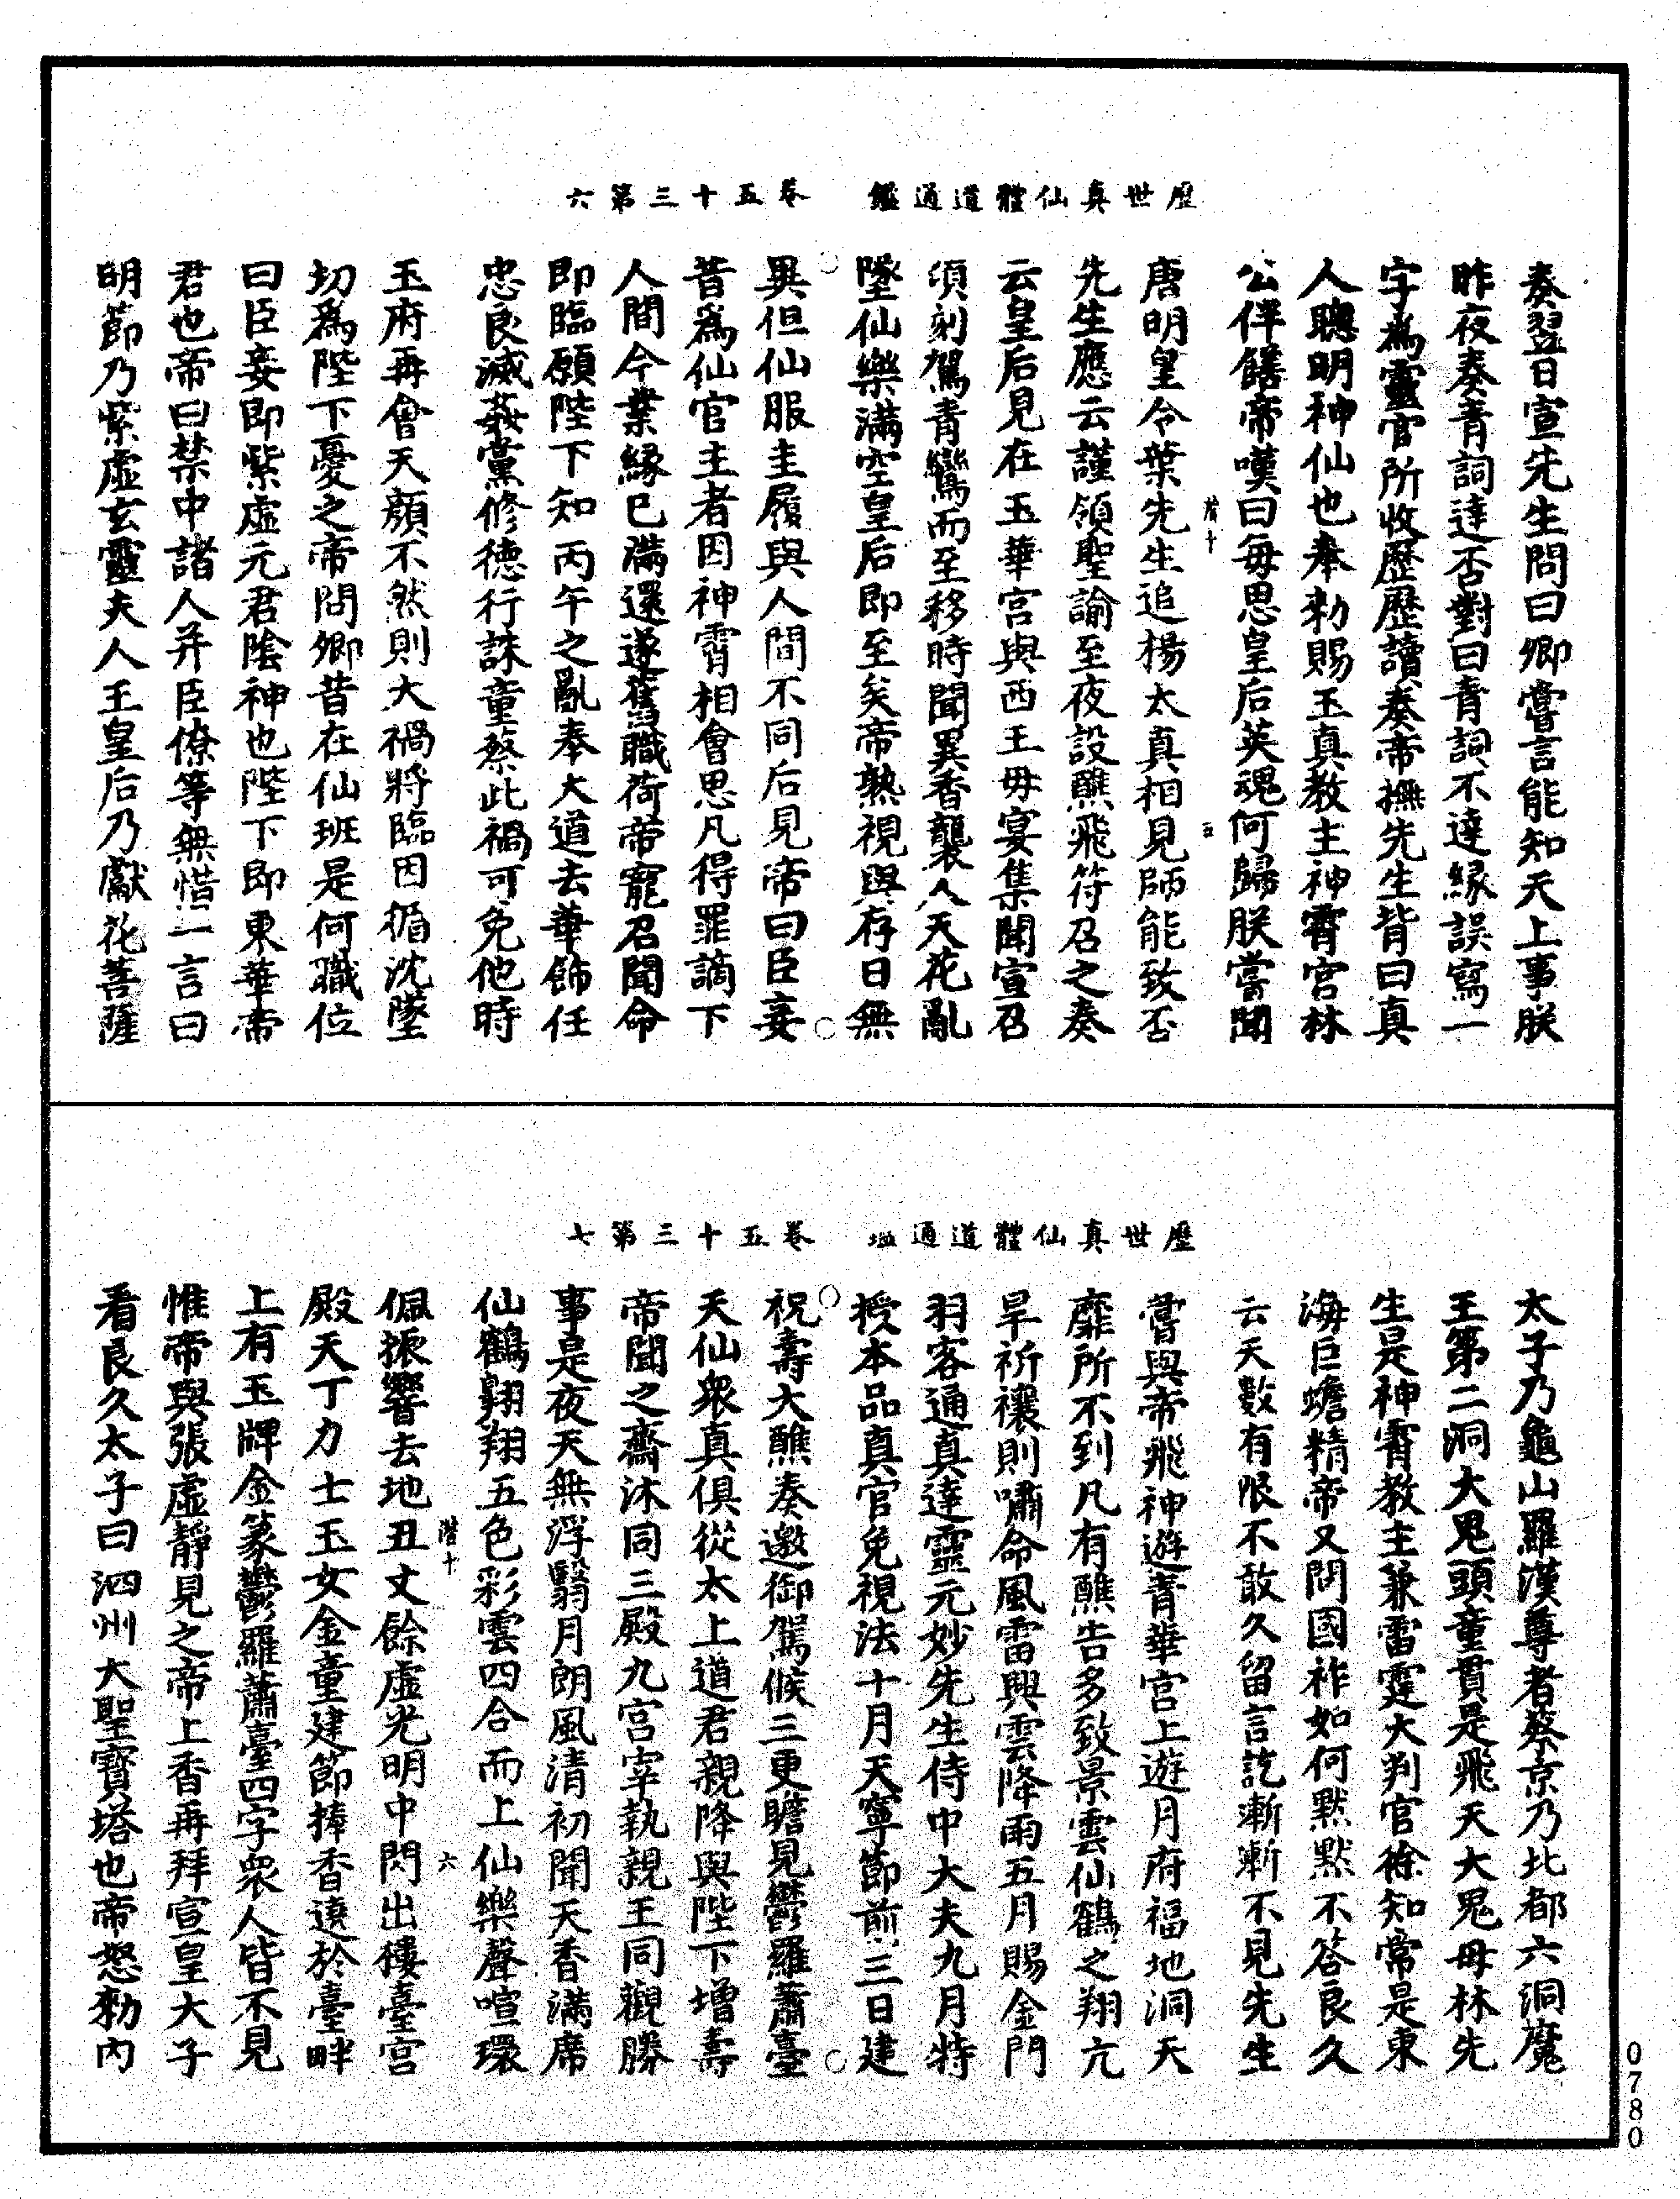 歷世真仙體道通鑑　卷五十三第六
奏翌日宣先生問曰卿嘗言能知天上事朕
昨夜奏青詞達否對曰青詞不達緣誤寫一
字為靈官所收歷歷讀奏帝撫先生背曰真
人聰明神仙也奉勑賜玉真教主神霄宮林
公伴饍帝嘆曰每思皇后英魂何歸朕嘗聞
階十
五
唐明皇令葉先生追楊太真相見師能致否
先生應云謹領聖諭至夜設醮飛符召之奏
云皇后見在玉華宮與西王母宴集聞宣召
頃刻駕青鸞而至移時聞異香襲人天花亂
墜仙樂滿空皇后即至矣帝熟視與存日無
異但仙服圭履與人間不同后見帝曰臣妾
昔為仙官主者因神霄相會思凡得罪謫下
人間今業緣已滿還遂舊職荷帝寵召聞命
即臨願陛下知丙午之亂奉大道去華飾任
忠良滅姦黨修德行誅童蔡此禍可免他時
玉府再會天顏不然則大禍將臨因循沈墜
切為陛下憂之帝問卿昔在仙班是何職位
曰臣妾即紫虛元君陰神也陛下即東華帝
君也帝曰禁中諸人并臣僚等無惜一言曰
明節乃紫虛玄靈夫人王皇后乃獻花菩薩
歷世真仙體道通鑑　卷五十三第七
太子乃龜山羅漢尊者蔡京乃北都六洞魔
王第二洞大鬼頭童貫是飛天大鬼母林先
生是神霄教主兼雷霆大判官徐知常是東
海巨蟾精帝又問國祚如何默默不答良久
云天數有限不敢久留言訖漸漸不見先生
嘗與帝飛神遊青華宮上遊月府福地洞天
靡所不到凡有醮告多致景雲仙鶴之翔亢
旱祈禳則嘯命風雷興雲降雨五月賜金門
羽客通真達靈元妙先生侍中大夫九月特
授本品真官免視法十月天寧節前三日建
祝壽大醮奏邀御駕候三更瞻見鬱羅蕭臺
天仙眾真俱從太上道君親降與陛下增壽
帝聞之齋沐同三殿九宮宰執親王同觀勝
事是夜天無浮翳月朗風清初聞天香滿席
仙鶴翱翔五色彩雲四合而上仙樂聲喧環
階十
六
佩振響去地丑丈餘虛光明中閃出樓臺宮
殿天丁力士玉女金童建節捧香遶於臺畔
上有玉牌金篆鬱羅蕭臺四字眾人皆不見
惟帝與張虛靜見之帝上香再拜宣皇太子
看良久太子曰泗州大聖寶塔也帝怒勑內
0780